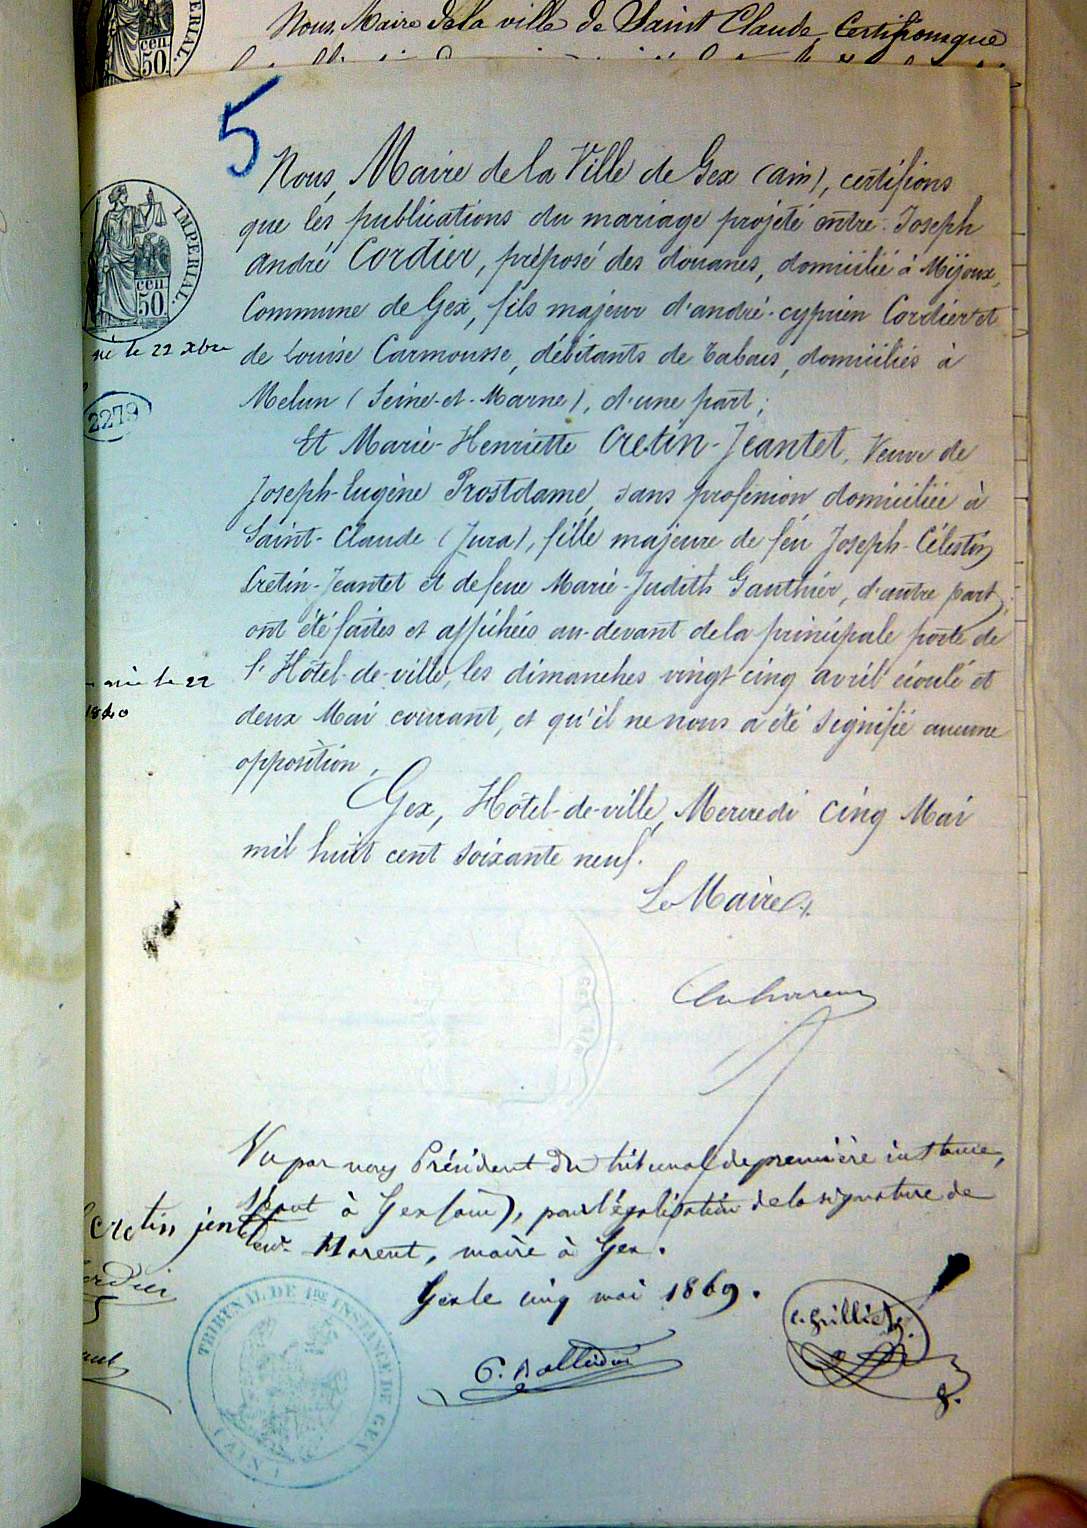 Nous, Maire de la ville de Saint Claude, Certifions que
5
Nous, Maire de la Ville de Gex (ain), certifions
que les publications du mariage projeté entre: Joseph
andré Cordier, préposé des douanes, domicilié à Mijoux,
Commune de Gex, fils majeur d'andré-cyprien Cordier et
de Louise Carmousse, débitants de tabacs, domiciliés à
Melun (Seine-et-Marne), d'une part;
Et Marie-Henriette Cretin-Jeantet, Veuve de
Joseph-Eugène Prostdame, sans profession, domiciliée à
Saint-Claude (Jura), fille majeure de feu Joseph-Célestin
Cretin-Jeantet et de feue Marie-Judith Gauthier, d'autre part;
ont été faites et affichées au-devant de la principale porte de
l'Hôtel-de-ville, les dimanches vingt cinq avril écoulé et
deux Mai courant, et qu'il ne nous a été signifié aucune
opposition.
Gex, Hôtel-de-ville, Mercredi cinq Mai
mil huit cent soixante neuf.
Le Maire
Vu par nous Président du tribunal de première instance,
séant à Gex (ain), pour légalisation de la signature de
Morent, maire à Gex.
Gex le cinq mai 1869.
IMPERIAL.
50
cen
IMPERIAL.
cen
50
né le 22 xbre
2279
née le 22
1840
cretin jent
TRIBUNAL DE 1RE INSTANCE DE GEX
(AIN)